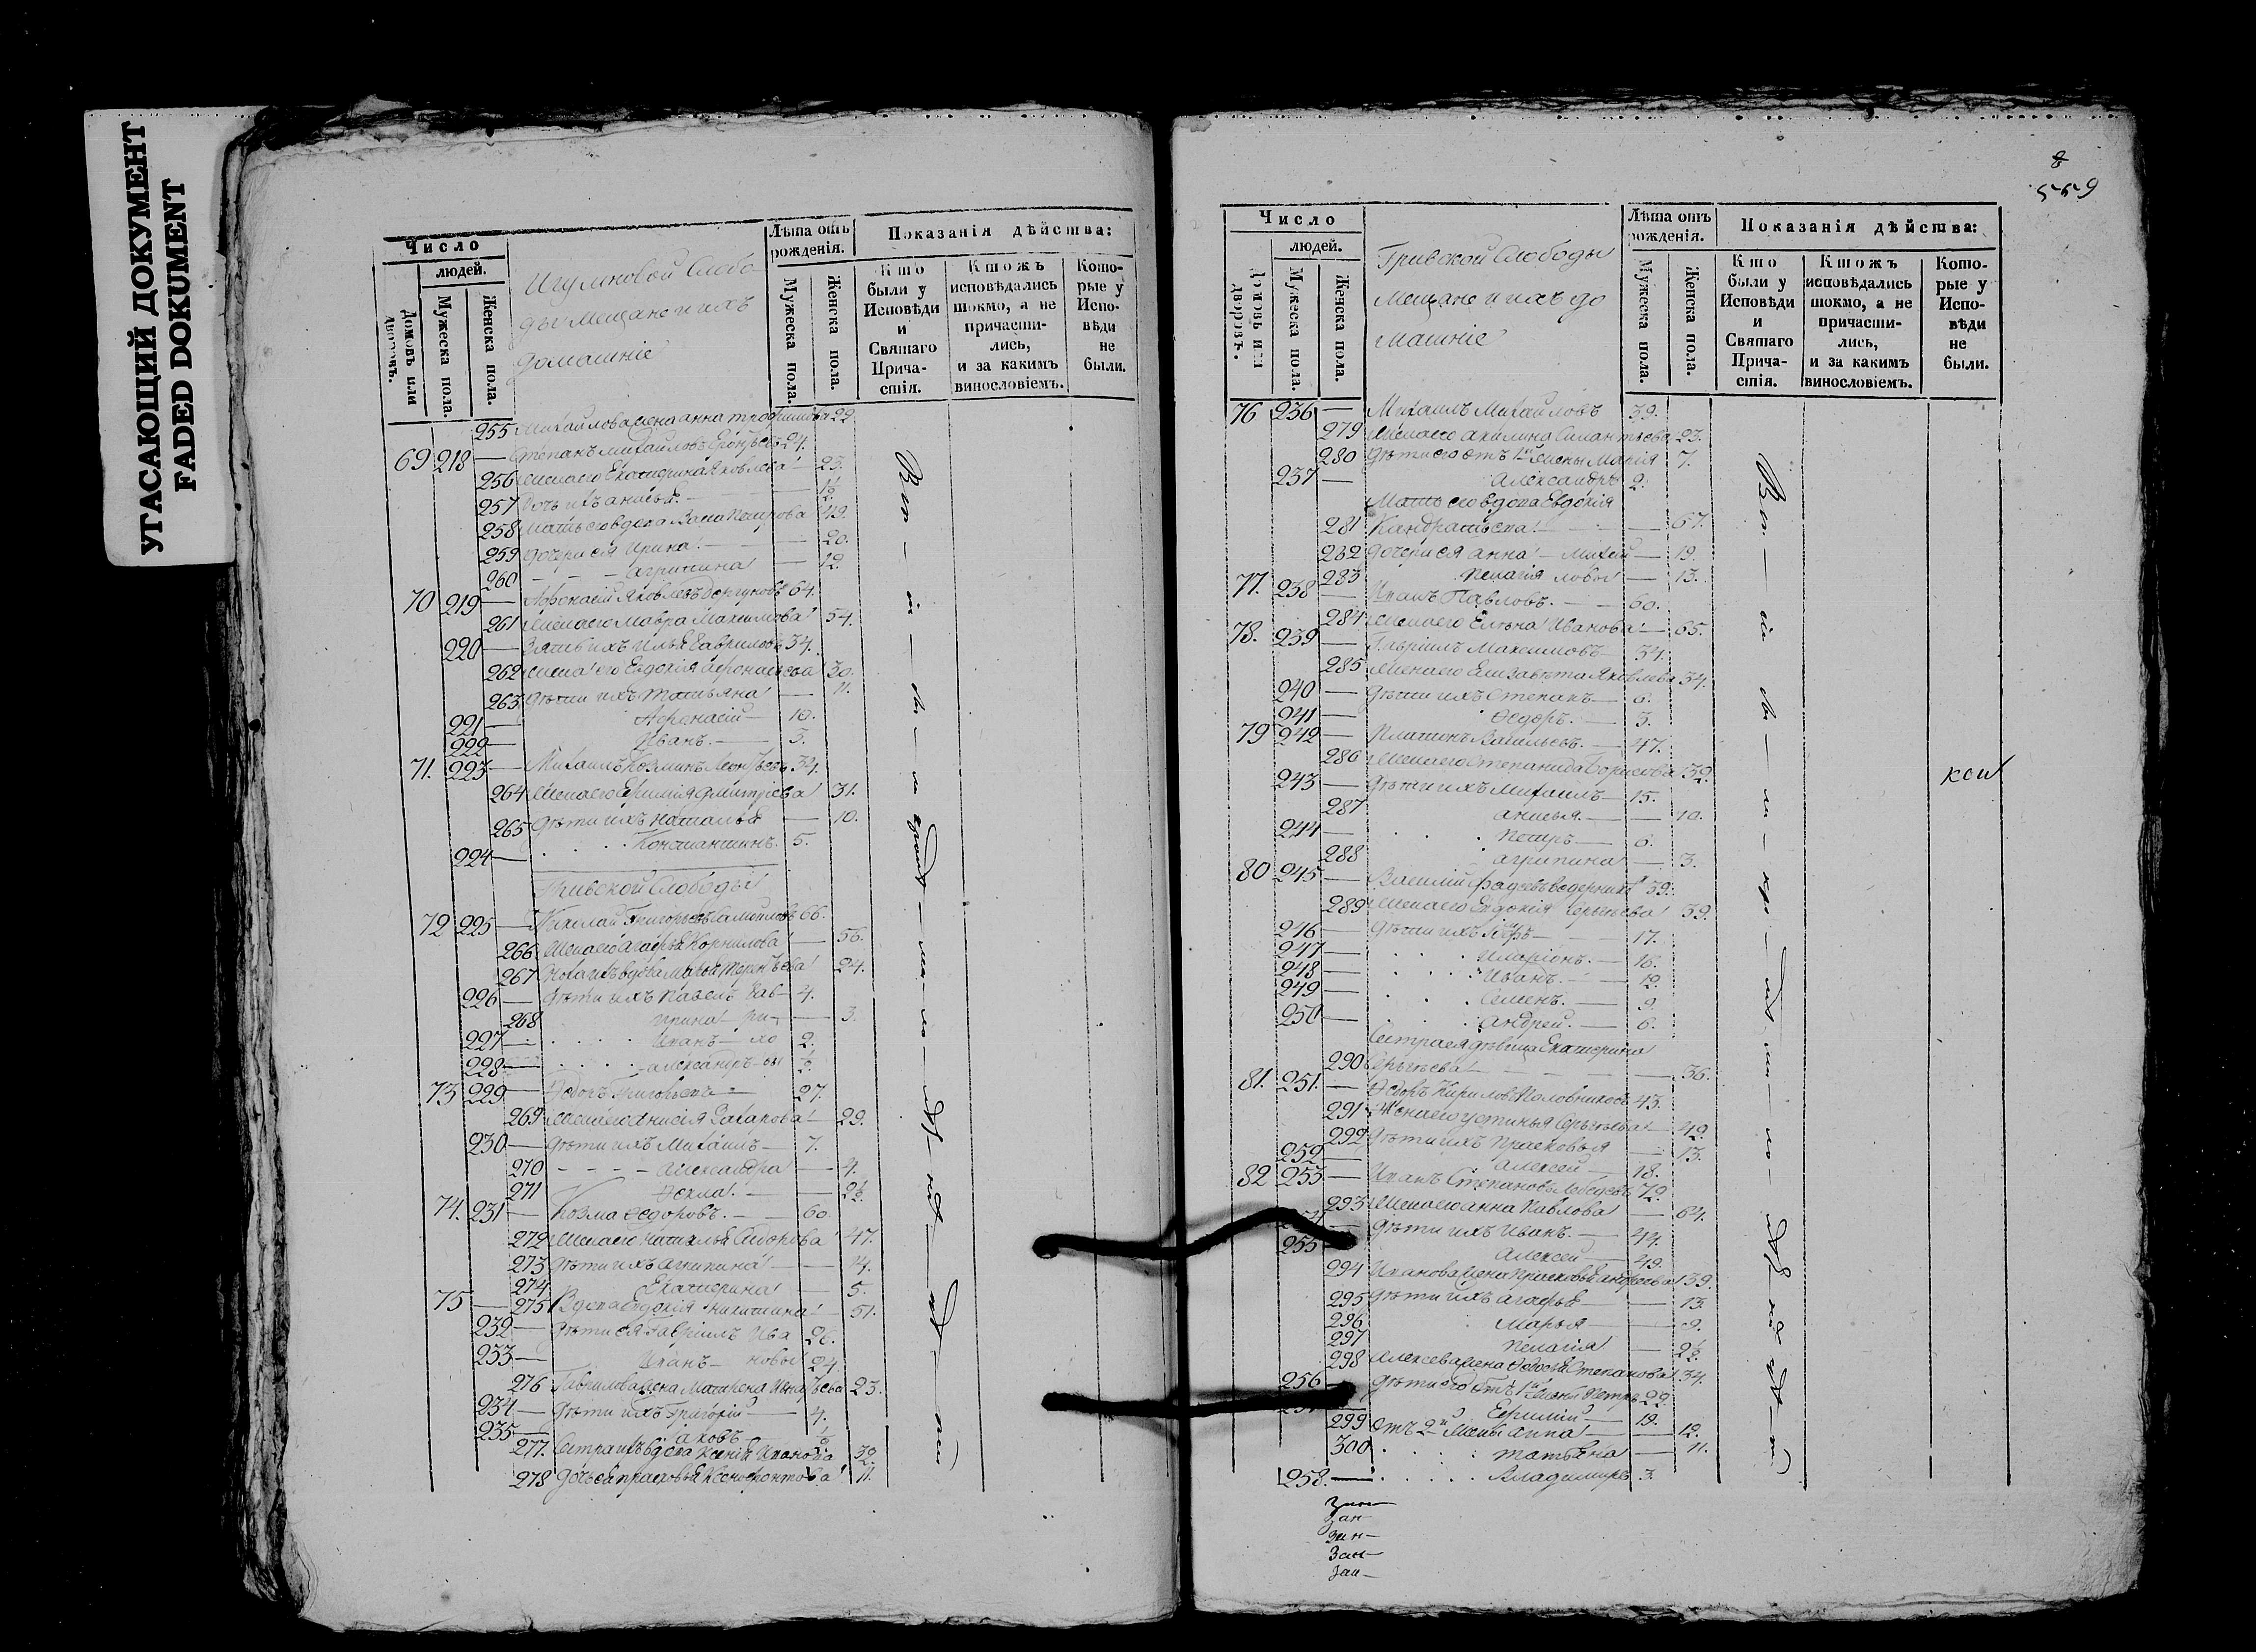 УГАСАЮЩИЙ ДОКУМЕНТ
FADED DOKUMENT
Число
людей.
Домовъ или дворовъ.
Мужеска пола.
Женска пола.
Игумновой Слобо
ды Мещане и ихъ
домашніе
Лѣта отъ рожденія.
Мужеска пола.
Женска пола.
Показанія дѣйства:
Кто были у Исповѣди и Святаго Причастія.
Ктожъ исповѣдались токмо, а не причастились, и за какимъ винословіемъ.
Которые у Исповѣди не были.
255 Михайлова жена Анна Трофимова 22
69 218 — Степанъ Михайловъ 24.
256 Жена его Екатерина Яковлева — 23.
257 Дочь ихъ Анисья. — 1½
258 Мать его вдова Петрова 49.
259 Дочери ея Ирина — 20.
260 — Агрипина — 12.
70 219 — Афонасій Яковлевъ 64.
261 Жена его Мавра Максимова 54.
220 — Зять ихъ Илья Гавриловъ 34.
262 Жена его Евдокія Афонасьева 30.
263 Дѣти ихъ Татьяна — 11.
221 — Афонасій — 10.
222 — Иванъ. — 3.
71. 223 — Михаилъ Козминъ 34.
264 Жена его Дмитріева 31.
265 Дѣти ихъ Наталья — 10.
224 — Константинъ. 5.
Гривской Слободы
72 225 — Григорьевъ 66.
266 Жена его Агафья Корнилова — 56.
267 вдова Марья Терентьева 24.
226 — Дѣти ихъ Павелъ Гав— 4.
268 Ирина — ри — 3.
227 — Иванъ — ло 2.
228 — Александръ — вы ½
73 229 — Ѳедоръ Григорьевъ — 27.
269 Жена его Анисія Захарова — 29.
230 — Дѣти ихъ Михаилъ — 7.
270 — Александра — 4.
271 Ѳекла. — 2½
74. 231 — Козма Ѳедоровъ. — 60.
272 Жена его Наталья Сидорова 47.
273 Дѣти ихъ Агрипина —
274 Екатерина — 5.
75 — 275 Вдова Евдокія Никитина — 51.
232 — Дѣти ея Гавріилъ Ива 26.
233 — Иванъ — новы 24.
276 Гаврилова жена Матрена 23.
234 — Дѣти ихъ Григорій — 4.
235 — Яковъ ½
277. Сестра ихъ вдова Ксенія Иванова 32.
278 Дочь ея Прасковья Ксенофонтова 11.
8
559
Число
людей.
Домовъ или дворовъ.
Мужеска пола.
Женска пола.
Гривской Слободы
Мещане и ихъ до
машніе
Лѣта отъ рожденія.
Мужеска пола.
Женска пола.
Показанія дѣйства:
Кто были у Исповѣди и Святаго Причастія.
Ктожъ исповѣдались токмо, а не причастились, и за какимъ винословіемъ.
Которые у Исповѣди не были.
76 236 — Михаилъ Михайловъ 39.
279 Жена его Акилина Силантьева 23.
280 Дѣти его отъ 1й жены Марія 7.
237 — Александръ 2.
Мать его вдова Евдокія
281 Кандратьева — 67.
282 Дочери ея Анна — Михай — 19.
283 Пелагія ловы — 13.
77. 238 — Иванъ Павловъ. — 60.
284 Жена его Елена Иванова — 65.
78. 239 — Гавріилъ Максимовъ — 34.
285 Жена его Елизавета Яковлева 34.
240 — Дѣти ихъ Степанъ — 6.
241 — Ѳедоръ. — 3.
79 242 — Платонъ Васильевъ. — 47.
286 Жена его Степанида Борисова 39.
243 — Дѣти ихъ Михаилъ — 15.
287 Анисья. — 10.
244 — Петръ — 6.
288 Агрипина — 3.
80 245 — Василій Фадеевъ 39.
289 Жена его Евдокія Сергѣева 39.
246 — Дѣти ихъ — 17.
247 — Иларіонъ. — 16.
248 — Иванъ. — 12.
249 — Семенъ. — 9.
250 — Андрей. — 6.
Сестра ея дѣвица Екатерина
290 Сергѣева — 36.
81. 251. — Ѳедоръ Кириловъ Половниковъ 43.
291 Жена его Устинья Сергѣева — 42.
292 Дѣти ихъ Прасковья — 13.
252 — Алексей — 18.
82 253 — Иванъ Степановъ 72.
293 Жена его Анна Павлова — 64.
254 — Дѣти ихъ Иванъ. — 44.
255 — Алексей — 42.
294 Иванова жена Прасковья Андреева 39.
295 Дѣти ихъ Агафья — 13.
296 Марья — 9.
297 Пелагія — 2½
298 Алексева жена Ѳедосья Степанова 34.
256 — Дѣти его отъ 1й жены Петръ 22.
Ефимій — 19.
299 отъ 2й жены Анна — 12.
300 Татьяна — 11.
258. — Владимиръ 3.